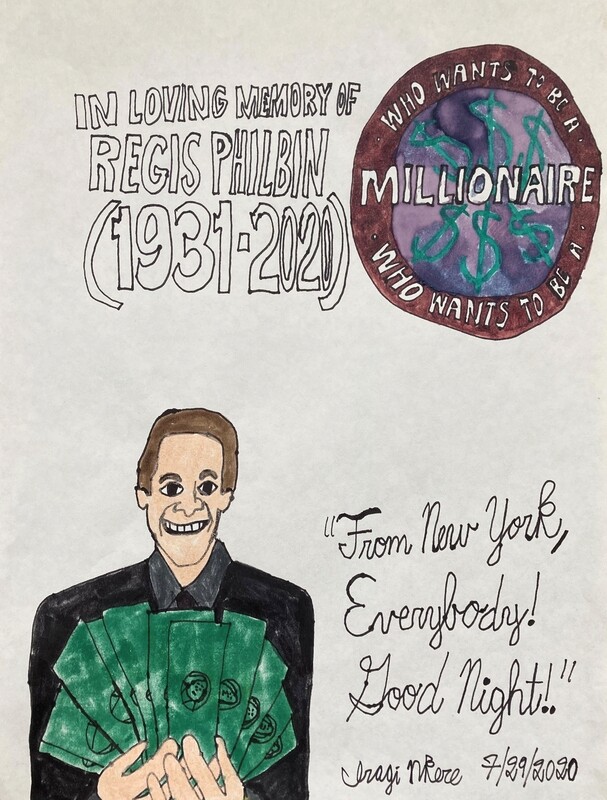 IN LOVING MEMORY OF
REGIS PHILBIN
(1931-2020)
WHO WANTS TO BE A
MILLIONAIRE
$$$
$$$
WHO WANTS TO BE A
"From New York,
Everybody!
Good Night!!"
7/29/2020